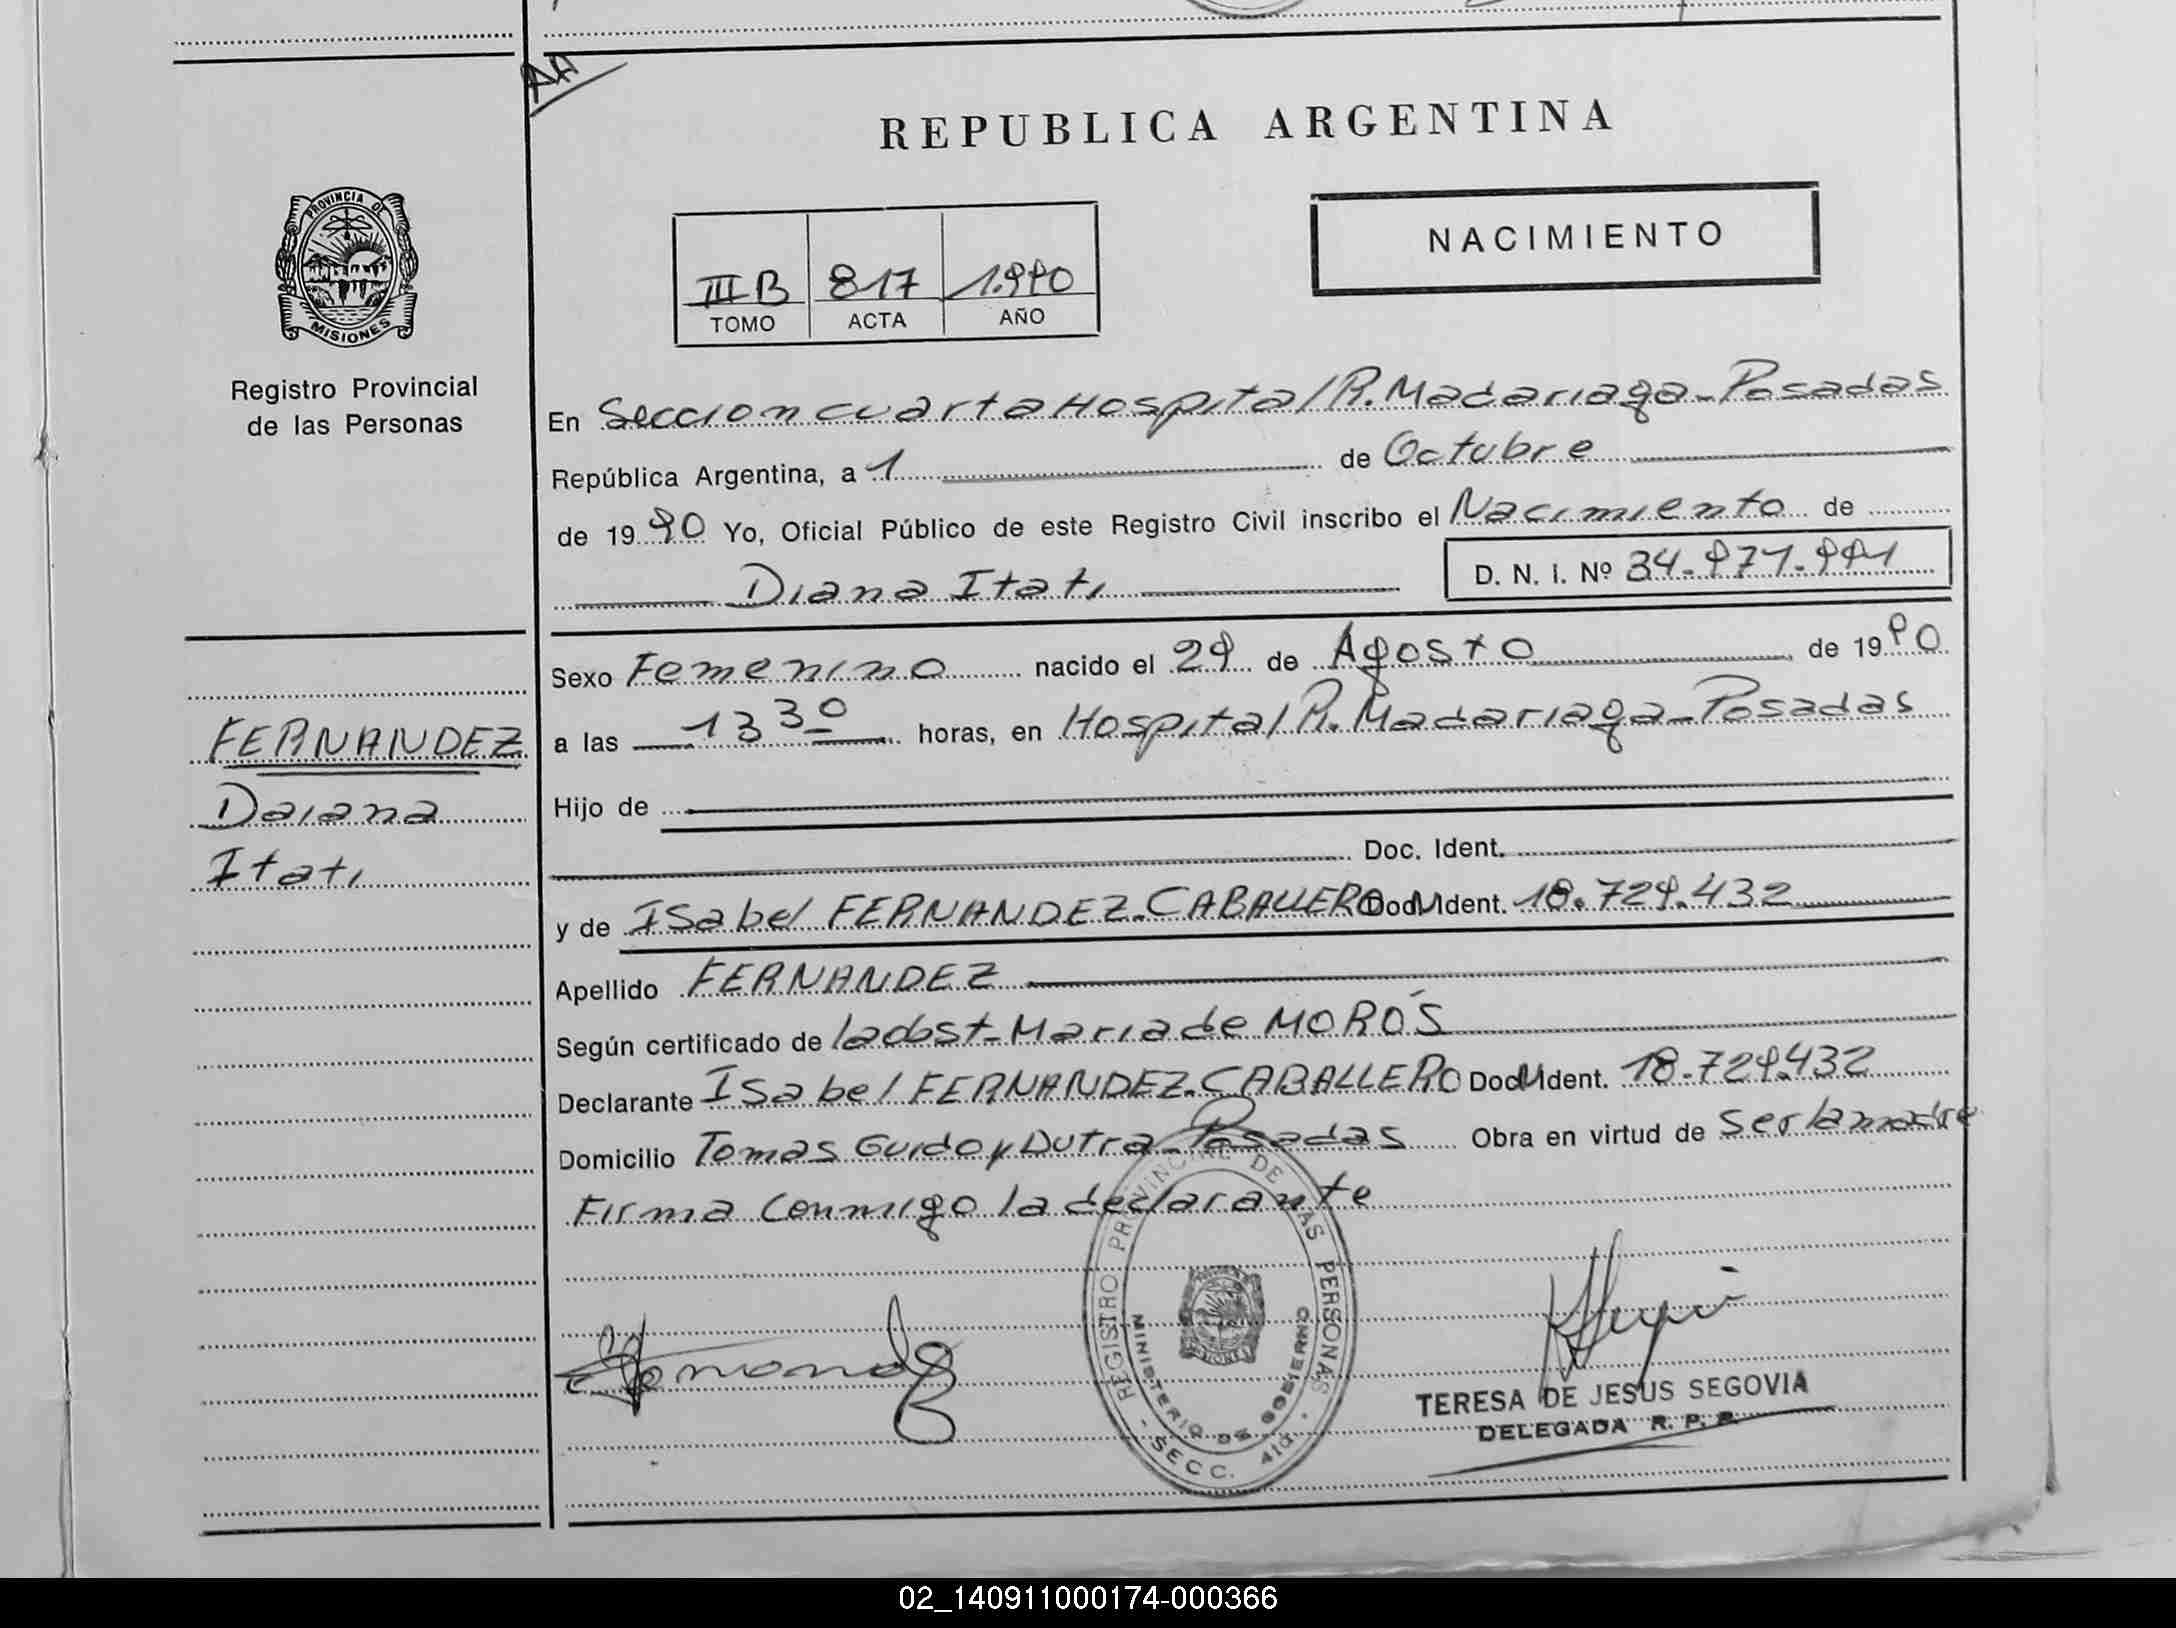 AA
REPUBLICA ARGENTINA
PROVINCIA DE
MISIONES
Registro Provincial
de las Personas
III B 817 1.990
TOMO ACTA AÑO
NACIMIENTO
En Seccion cuarta Hospital R. Madariaga - Posadas
República Argentina, a 1 de Octubre
de 1990 Yo, Oficial Público de este Registro Civil inscribo el Nacimiento de
Diana Itati D. N. I. Nº 34-971-991
Sexo Femenino nacido el 29 de Agosto de 1990
a las 13 30 horas, en Hospital R. Madariaga - Posadas
FERNANDEZ
Daiana
Itati
Hijo de
Doc. Ident.
y de Isabel FERNANDEZ-CABALLERO Doc. Ident. 18.729.432
Apellido FERNANDEZ
Según certificado de la obst- Maria de MOROS
Declarante Isabel FERNANDEZ-CABALLERO Doc. Ident. 18-729.432
Domicilio Tomas Guido y Dutra - Posadas Obra en virtud de ser la madre
Firma conmigo la declarante
REGISTRO PROVINCIAL DE LAS PERSONAS
MINISTERIO DE GOBIERNO
- SECC. 4ta. -
TERESA DE JESUS SEGOVIA
DELEGADA R. P. P.
02_140911000174-000366